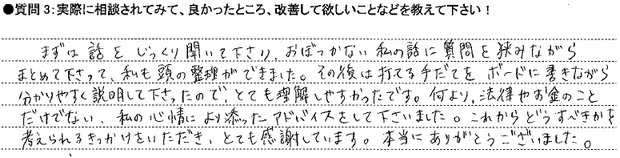 ●質問3:実際に相談されてみて、良かったところ、改善して欲しいことなどを教えて下さい!
まずは話をじっくり聞いて下さり、おぼつかない私の話に質問を狭みながら
まとめて下さって、私も頭の整理ができました。その後は打てる手だてをボードに書きながら
分かりやすく説明して下さったのでとても理解しやすかったです。何より、法律やお金のこと
だけでない、私の心情により添ったアドバイスをして下さいました。これからどうすべきかを
考えられるきっかけをいただき、とても感謝しています。本当にありがとうございました。